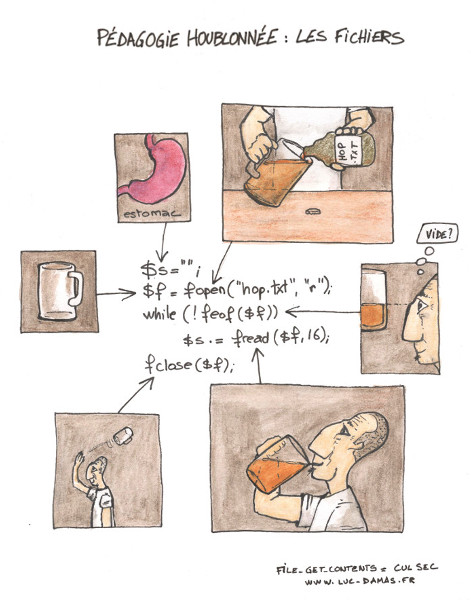 PÉDAGOGIE HOUBLONNÉE : LES FICHIERS
HOP
.TXT
estomac
VIDE?
$s = "" ;
$f = fopen("hop.txt", "r");
while (! feof($f))
$s .= fread($f, 16);
fclose($f);
FILE_GET_CONTENTS = CUL SEC
WWW.LUC-DAMAS.FR